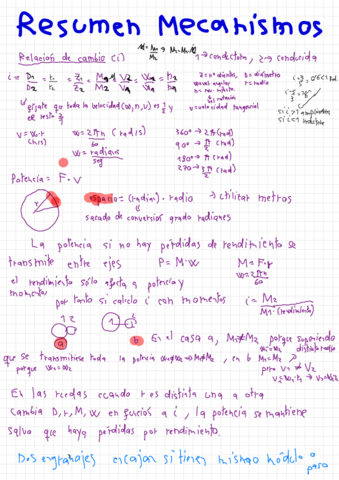 Resumen Mecanismos
Relación de cambio (i)
1 → conductora, 2 → conducida
i = D1/D2 = r1/r2 = Z1/Z2 = V2 = W2 = n2/n1
z = nº dientes, D = diámetro
r = radio
v = velocidad tangencial
fíjate que toda la velocidad (w, n, v) es 2/1 y
el resto 1/2
V = W·r
(m/s)
W = 2πn/60 (rad/s)
W = radianes/seg
360º → 2π(rad)
90º → π/2 (rad)
180º → π(rad)
270 → 3π/2 (rad)
Potencia = F·v
espacio = (radian) · radio → utilizar metros
sacado de conversión grado radianes
La potencia si no hay pérdidas de rendimiento se
transmite entre ejes P = M·W M = F·r
W = 2πn/60
el rendimiento sólo afecta a potencia y
momento
por tanto si calculo i con momentos i = M2/M1·(rendimiento)
1 2
a b
En el caso a, M1≠M2 porque suponiendo
distinto radio
que se transmitiese toda la potencia M1≠M2, en b M1=M2
porque W1=W2 pero V1≠V2
En las ruedas cuando r es distinta una a otra
cambia D, r, M, W en función a i, la potencia se mantiene
salvo que haya pérdidas por rendimiento.
Dos engranajes encajan si tienen mismo módulo o
paso